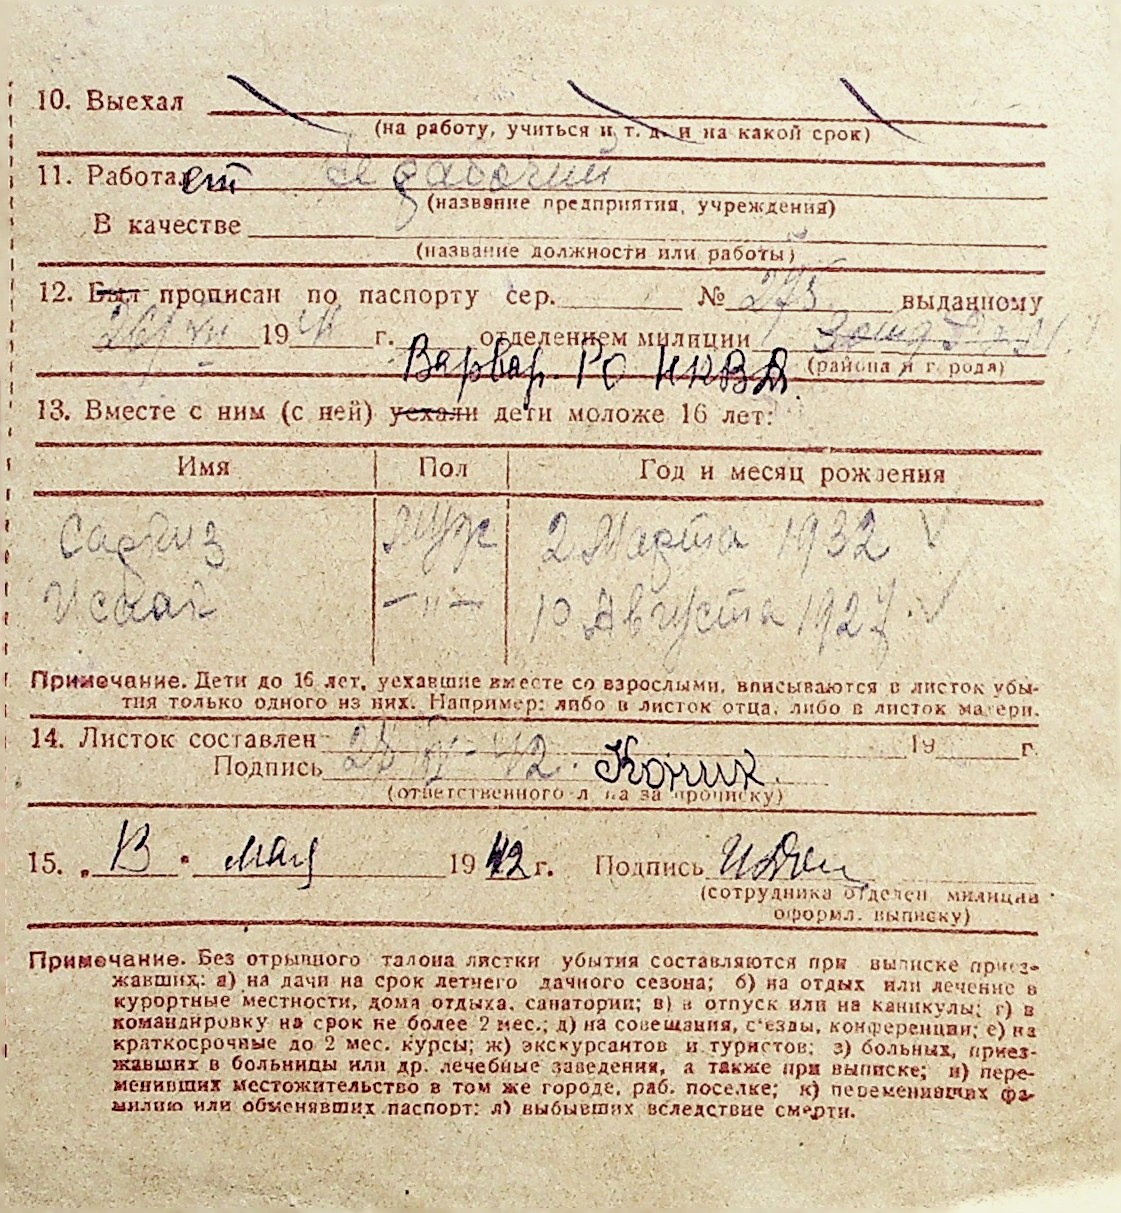 10. Выехал
(на работу, учиться и т. д. и на какой срок)
11. Работает рабочий
(название предприятия, учреждения)
В качестве
(название должности или работы)
12. Был прописан по паспорту сер. № 275 выданному
26/VII 1941 г. отделением милиции
Варвар. РО НКВД (района и города)
13. Вместе с ним (с ней) уехали дети моложе 16 лет:
Имя Пол Год и месяц рождения
муж 2 Марта 1932
Исаак —"— 10 Августа 1927
Примечание. Дети до 16 лет, уехавшие вместе со взрослыми, вписываются в листок убы-
тия только одного из них. Например: либо в листок отца, либо в листок матери.
14. Листок составлен 19 г.
Подпись 42. Коник.
(ответственного лица за прописку)
15. „ 13 " мая 1942 г. Подпись
(сотрудника отделен. милиции
оформл. выписку)
Примечание. Без отрывного талона листки убытия составляются при выписке приез-
жавших: а) на дачи на срок летнего дачного сезона; б) на отдых или лечение в
курортные местности, дома отдыха, санатории; в) в отпуск или на каникулы; г) в
командировку на срок не более 2 мес.; д) на совещания, с'езды, конференции; е) на
краткосрочные до 2 мес. курсы; ж) экскурсантов и туристов; з) больных, приез-
жавших в больницы или др. лечебные заведения, а также при выписке; и) пере-
менивших местожительство в том же городе, раб. поселке; к) переменивших фа-
милию или обменявших паспорт; л) выбывших вследствие смерти.